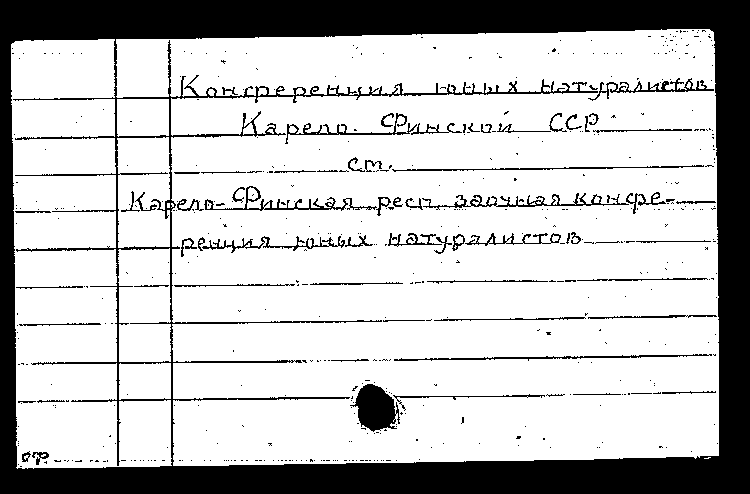 Конференция юных натуралистов
Карело-Финской ССР
см.
Карело-Финская респ. заочная конфе-
ренция юных натуралистов